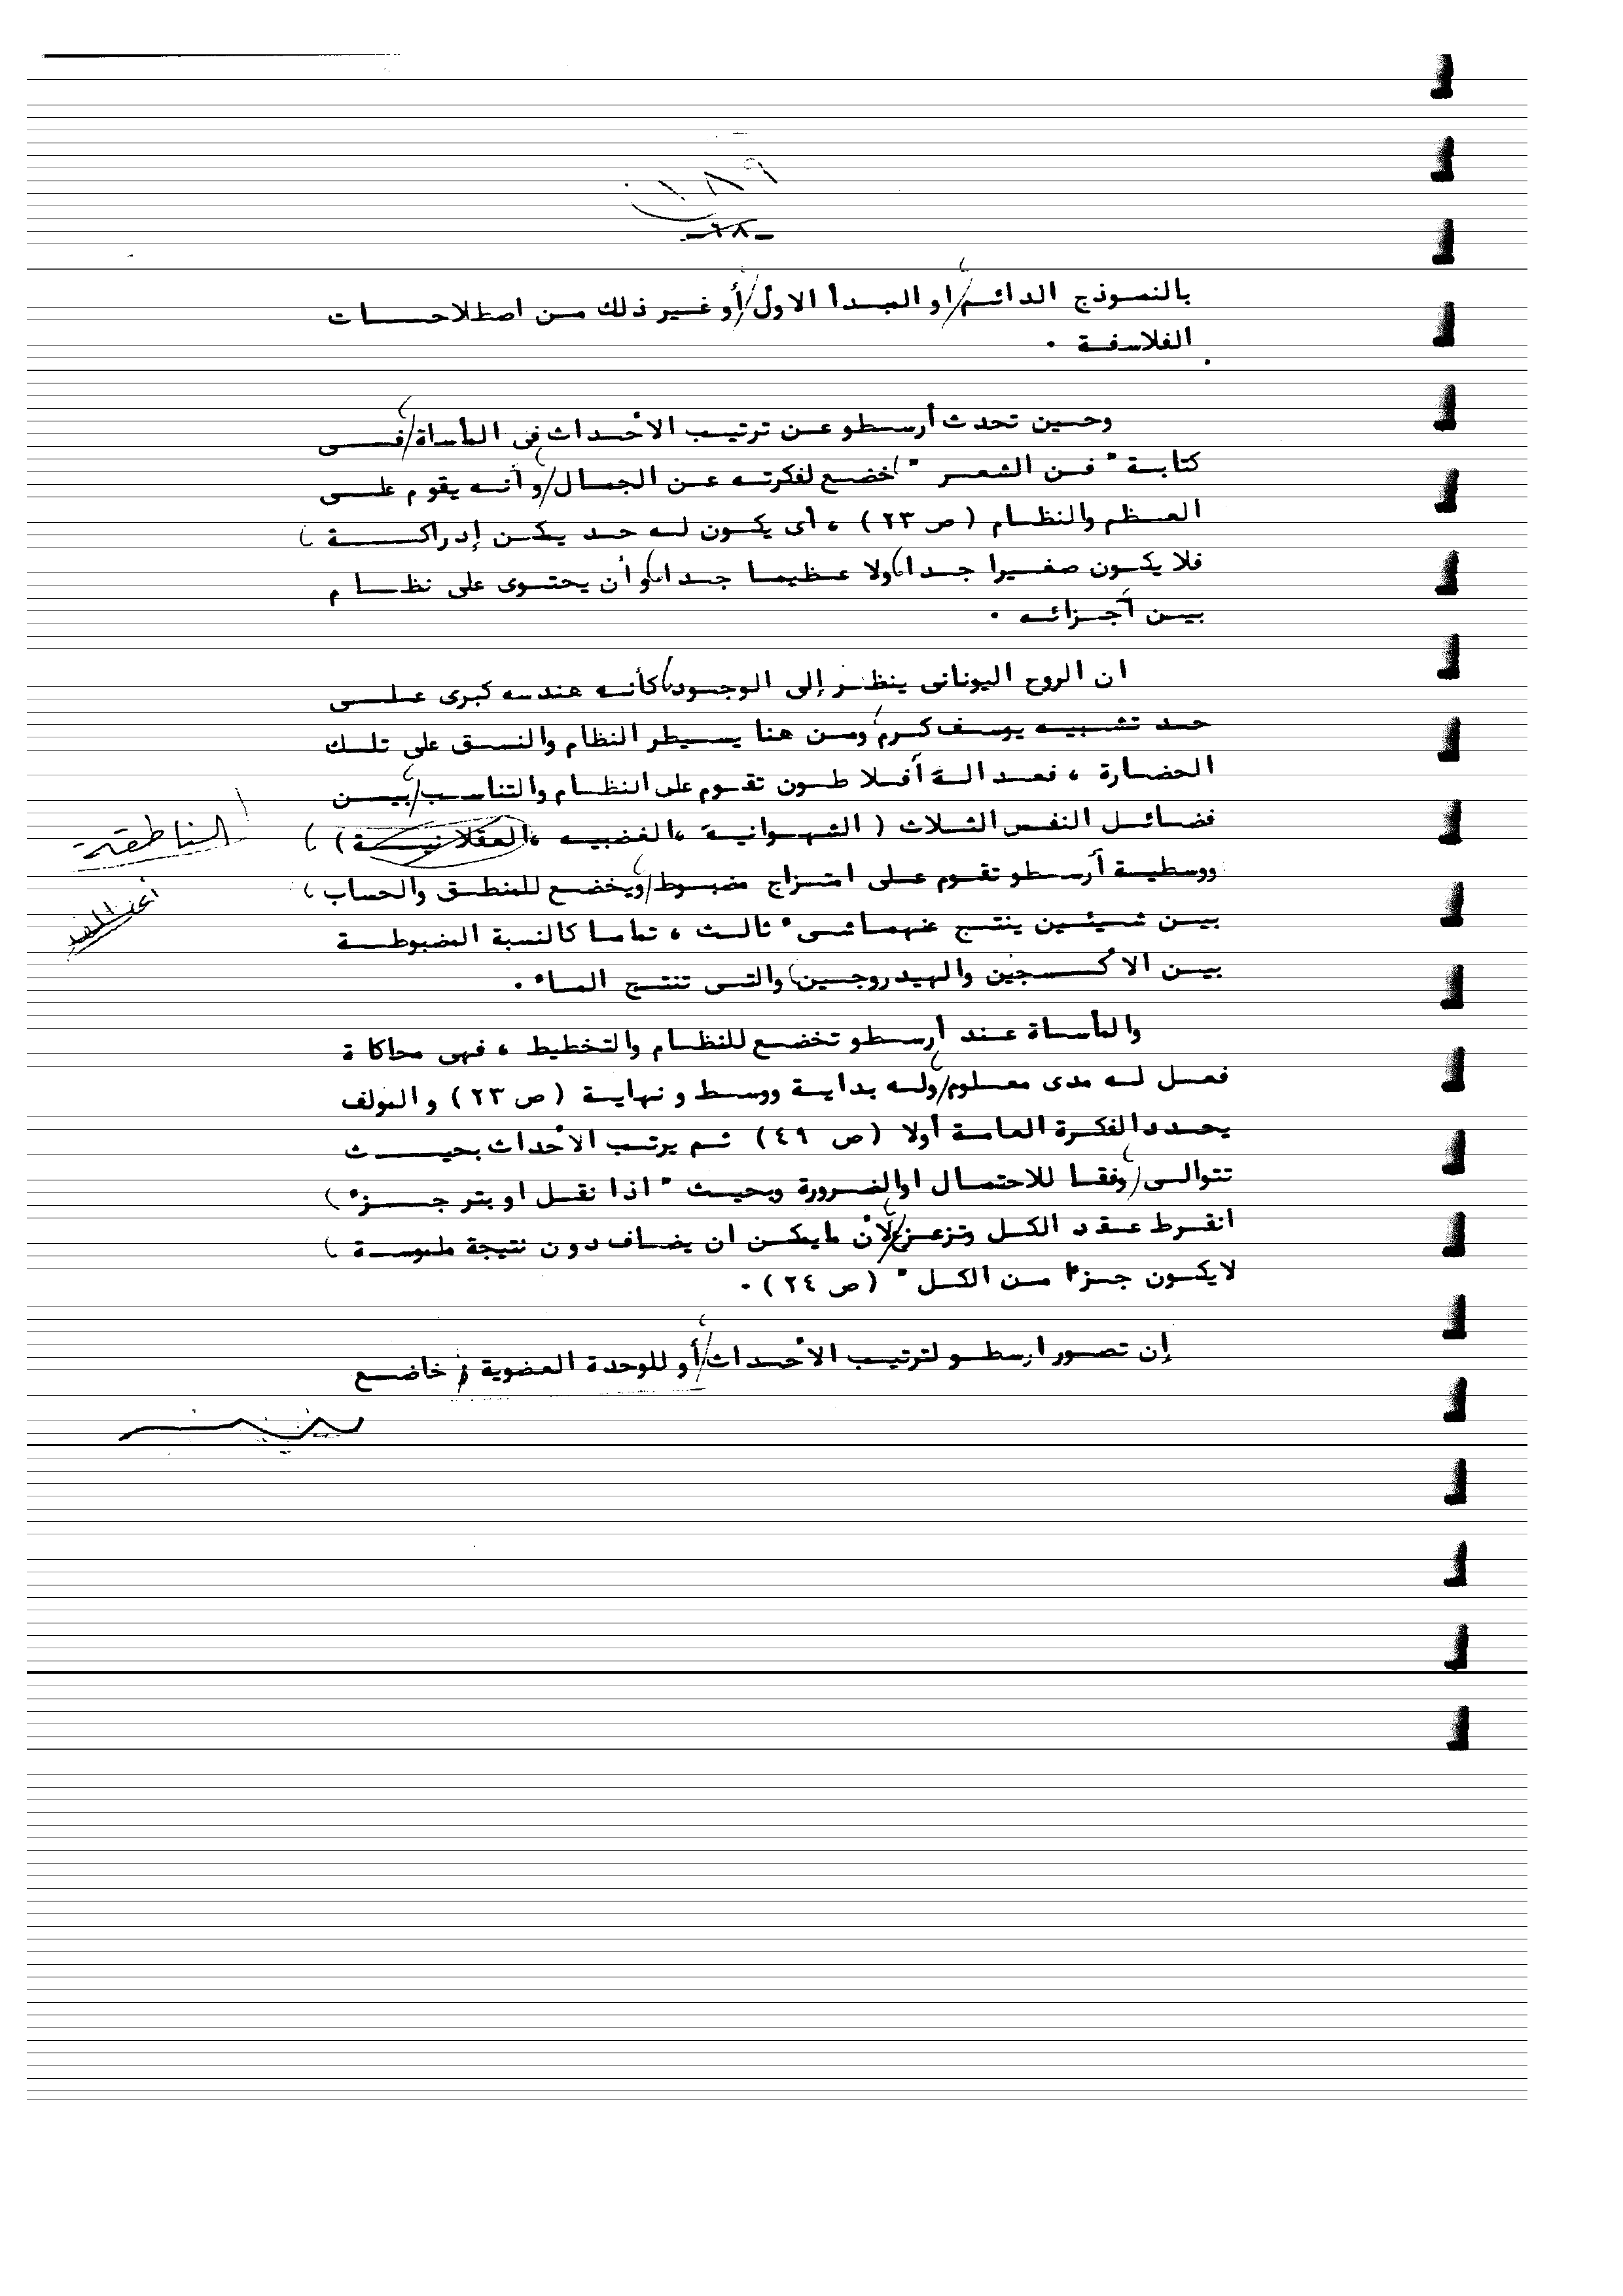 ١٨٦
-٦٨-
بالنموذج الدائم او المبدأ الاول أو غير ذلك من اصطلاحات
الفلاسفة .
وحين تحدث أرسطو عن ترتيب الأحداث فى المأساة فى
كتابة " فن الشعر " خضع لفكرته عن الجمال وأنه يقوم على
العظم والنظام ( ص ٢٣ ) ، أى يكون له حد يمكن إدراكة
فلا يكون صغيرا جدا ولا عظيما جدا وأن يحتوى على نظام
بين أجزائه .
ان الروح اليونانى ينظر إلى الوجود كأنه هندسه كبرى على
حد تشبيه يوسف كرم ومن هنا يسيطر النظام والنسق على تلك
الحضارة ، فعدالة أفلا طون تقوم على النظام والتناسب بين
فضائل النفس الثلاث ( الشهوانية ، الغضبيه ، العقلانية )
الناطقة
ووسطية أرسطو تقوم على امتزاج مضبوط ويخضع للمنطق والحساب
بين شيئين ينتج عنهما شىء ثالث ، تماما كالنسبة المضبوطة
بين الأكسجين والهيدروجين والتى تنتج الماء .
والمأساة عند أرسطو تخضع للنظام والتخطيط ، فهى محاكاة
فعل له مدى معلوم وله بداية ووسط ونهاية ( ص ٢٣ ) والمؤلف
يحدد الفكرة العامة أولا ( ص ٤٩ ) ثم يرتب الأحداث بحيث
تتوالى وفقا للاحتمال اوالضرورة وبحيث " اذا نقل او بتر جزء
انفرط عقد الكل وتزعزع لأن مايمكن ان يضاف دون نتيجة ملموسة
لايكون جزءا من الكل " ( ص ٢٤ ) .
إن تصور ارسطو لترتيب الأحداث أو للوحدة العضوية خاضع